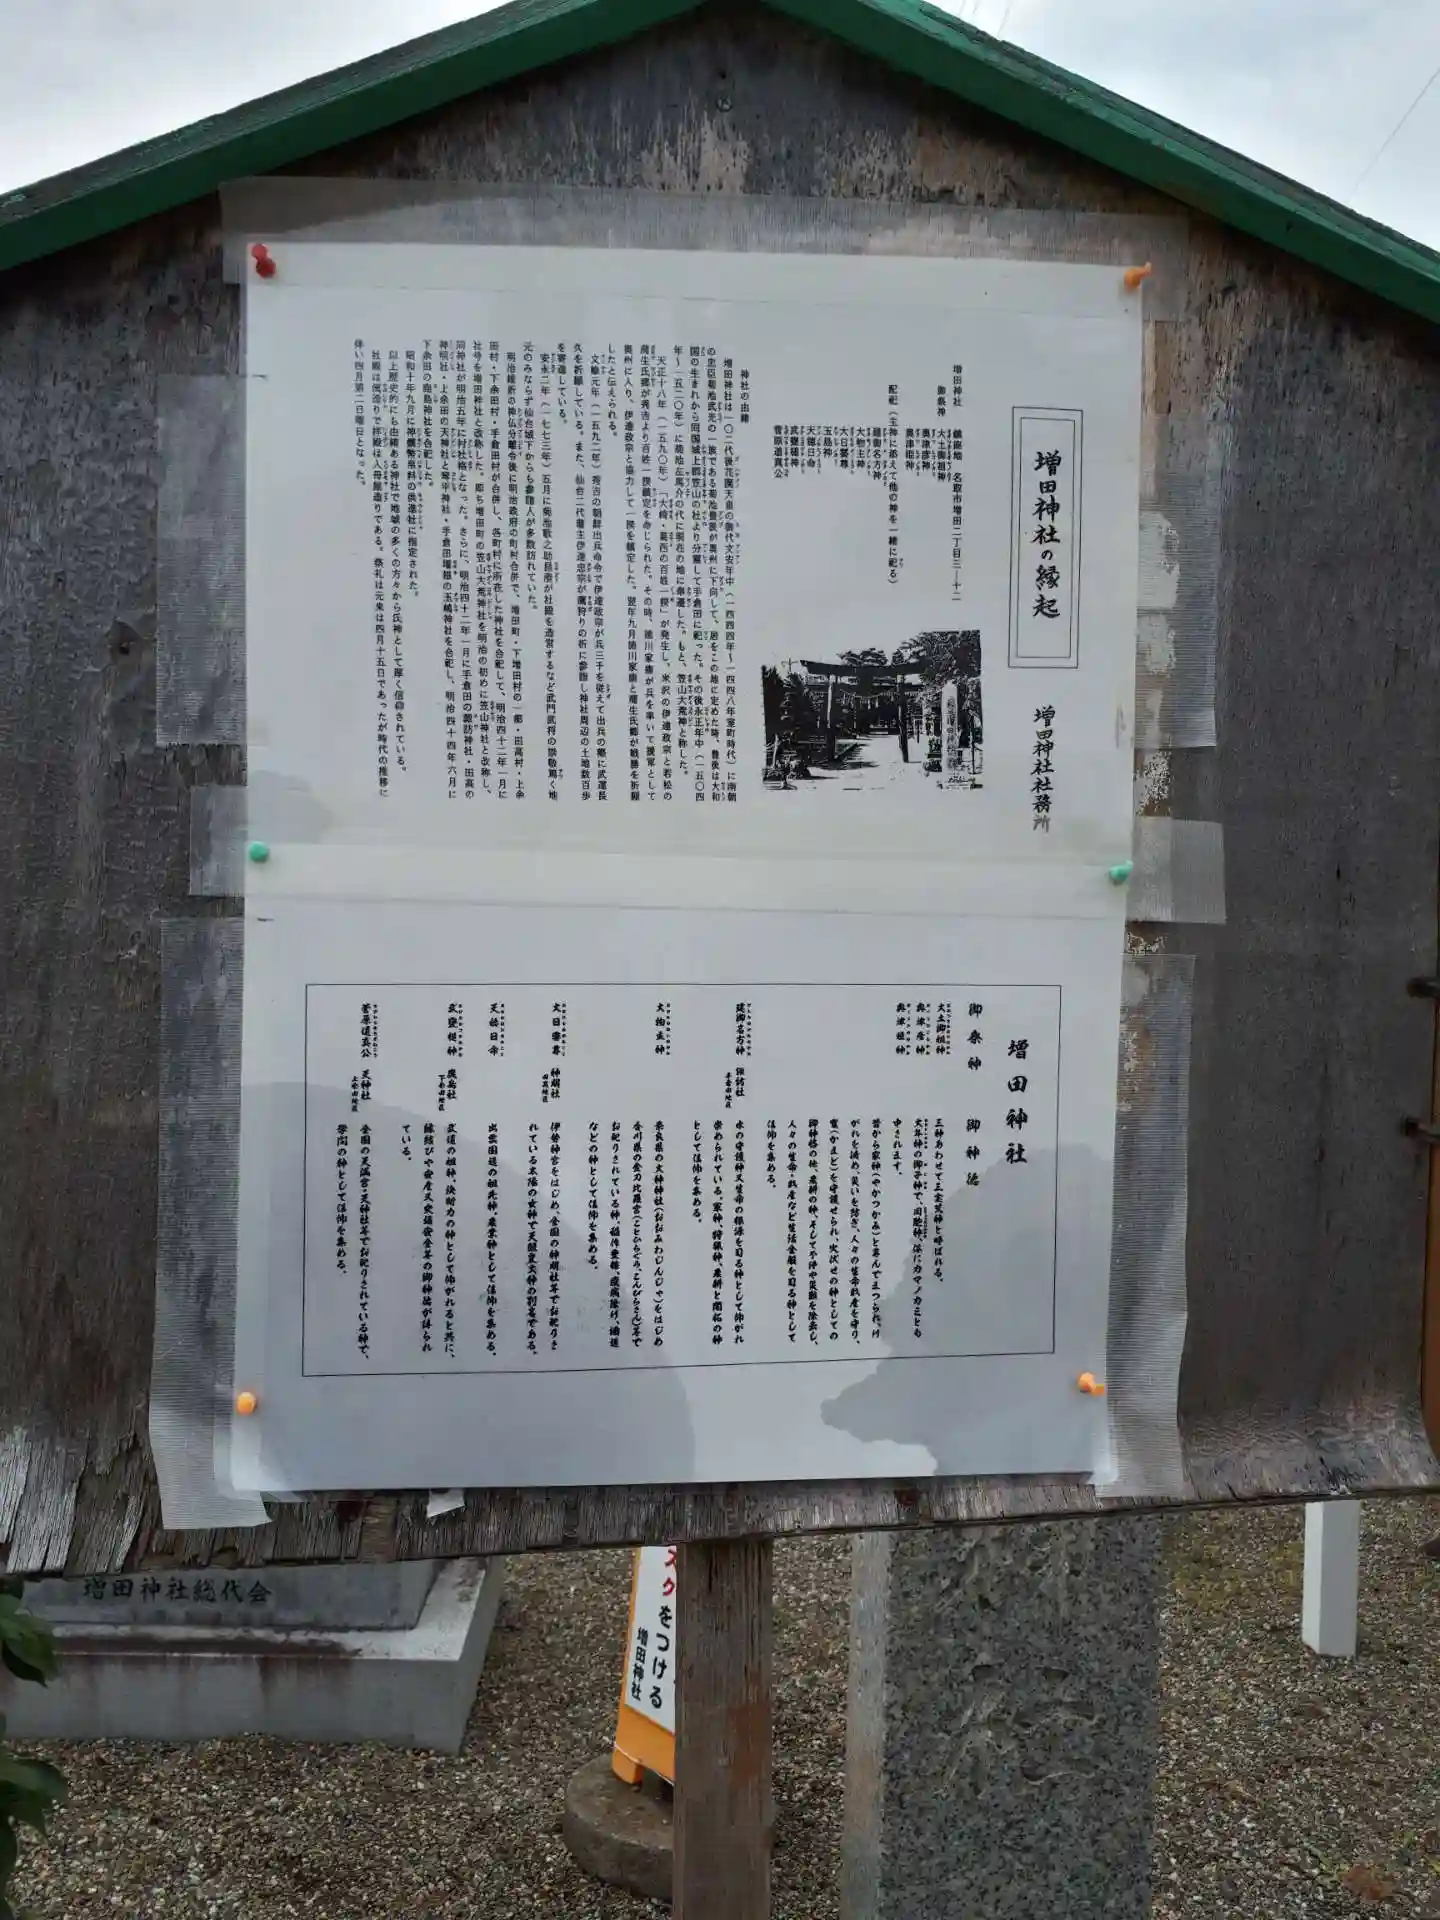 増田神社の縁起
増田神社社務所
増田神社 鎮座地 名取市増田二丁目三―十二
御祭神 大土御祖神
奥津彦神
奥津姫神
配祀(主神に添えて他の神を一緒に祀る)
建御名方神
大物主神
大日孁尊
玉島神
天穂日命
武甕槌神
菅原道真公
神社の由緒
増田神社は一〇二代後花園天皇の御代文安年中(一四四四年~一四四八年室町時代)に南朝
の忠臣菊池武光の一族である菊池豊後が奥州に下向して、居をこの地に定めた時、豊後は大和
国の生まれから同国城上郡笠山の社より分霊して手倉田に祀った。その後永正年中(一五〇四
年~一五二〇年)に菊池左馬介の代に現在の地に奉遷した。もと、笠山大荒神と称した。
天正十八年(一五九〇年)「大崎・葛西の百姓一揆」が発生し、米沢の伊達政宗と若松の
蒲生氏郷が秀吉より百姓一揆鎮定を命じられた。その時、徳川家康が兵を率いて援軍として
奥州に入り、伊達政宗と協力して一揆を鎮定した。翌年九月徳川家康と蒲生氏郷が戦勝を祈願
したと伝えられる。
文禄元年(一五九二年)秀吉の朝鮮出兵命令で伊達政宗が兵三千を従えて出兵の際に武運長
久を祈願している。また、仙台二代藩主伊達忠宗が鷹狩りの折に参詣し神社周辺の土地数百歩
を寄進している。
安永二年(一七七三年)五月に菊池歌之助昌房が社殿を造営するなど武門武将の崇敬篤く地
元のみならず仙台城下からも参詣人が多数訪れていた。
明治維新の神仏分離令後に明治政府の町村合併で、増田町・下増田村の一部・田高村・上余
田村・下余田村・手倉田村が合併し、各町村に所在した神社を合祀して、明治四十二年一月に
社号を増田神社と改称した。即ち増田町の笠山大荒神社を明治の初めに笠山神社と改称し、
同神社が明治五年に村社格となった。さらに、明治四十二年一月に手倉田の諏訪神社・田高の
神明社・上余田の天神社と琴平神社・手倉田堰根の玉嶋神社を合祀し、明治四十四年六月に
下余田の鹿島神社を合祀した。
昭和十年九月に神饌幣帛料の供進社に指定された。
以上歴史的にも由緒ある神社で地域の多くの方々から氏神として厚く信仰されている。
社殿は流造りで拝殿は入母屋造りである。祭礼は元来は四月十五日であったが時代の推移に
伴い四月第二日曜日となった。
増田神社
御祭神 御神徳
大土御祖神
奥津彦神
奥津姫神
三神あわせて三宝荒神と呼ばれる。
大年神の御子神で、同胞神、俗にカマノカミとも
申されます。
昔から家神(やかつかみ)と尊んでまつられ、け
がれを清め、災いを防ぎ、人々の生命財産を守り、
竈(かまど)を守護せられ、火伏せの神としての
御神格の他、農耕の神、そして不浄や災難を除去し、
人々の生命・財産など生活全般を司る神として
信仰を集める。
建御名方神 諏訪社
手倉田地区
水の守護神又生命の根源を司る神として仰がれ
崇められている。軍神、狩猟神、農耕と開拓の神
として信仰を集める。
大物主神
奈良県の大神神社(おおみわじんじゃ)をはじめ
香川県の金刀比羅宮(ことひらぐう、こんぴらさん)等で
お祀りされている神。稲作豊穣、疫病除け、醸造
などの神として信仰を集める。
大日孁尊 神明社
田高地区
伊勢神宮をはじめ、全国の神明社等でお祀りさ
れている太陽の女神で天照皇大神の別名である。
天穂日命
出雲国造の祖先神・農業神として信仰を集める。
武甕槌神 鹿島社
下余田地区
武道の祖神、決断力の神として仰がれると共に、
縁結びや安産又交通安全等の御神徳が得られ
ている。
菅原道真公 天神社
上余田地区
全国の天満宮・天神社等でお祀りされている神で、
学問の神として信仰を集める。
増田神社総代会
スクをつける
増田神社